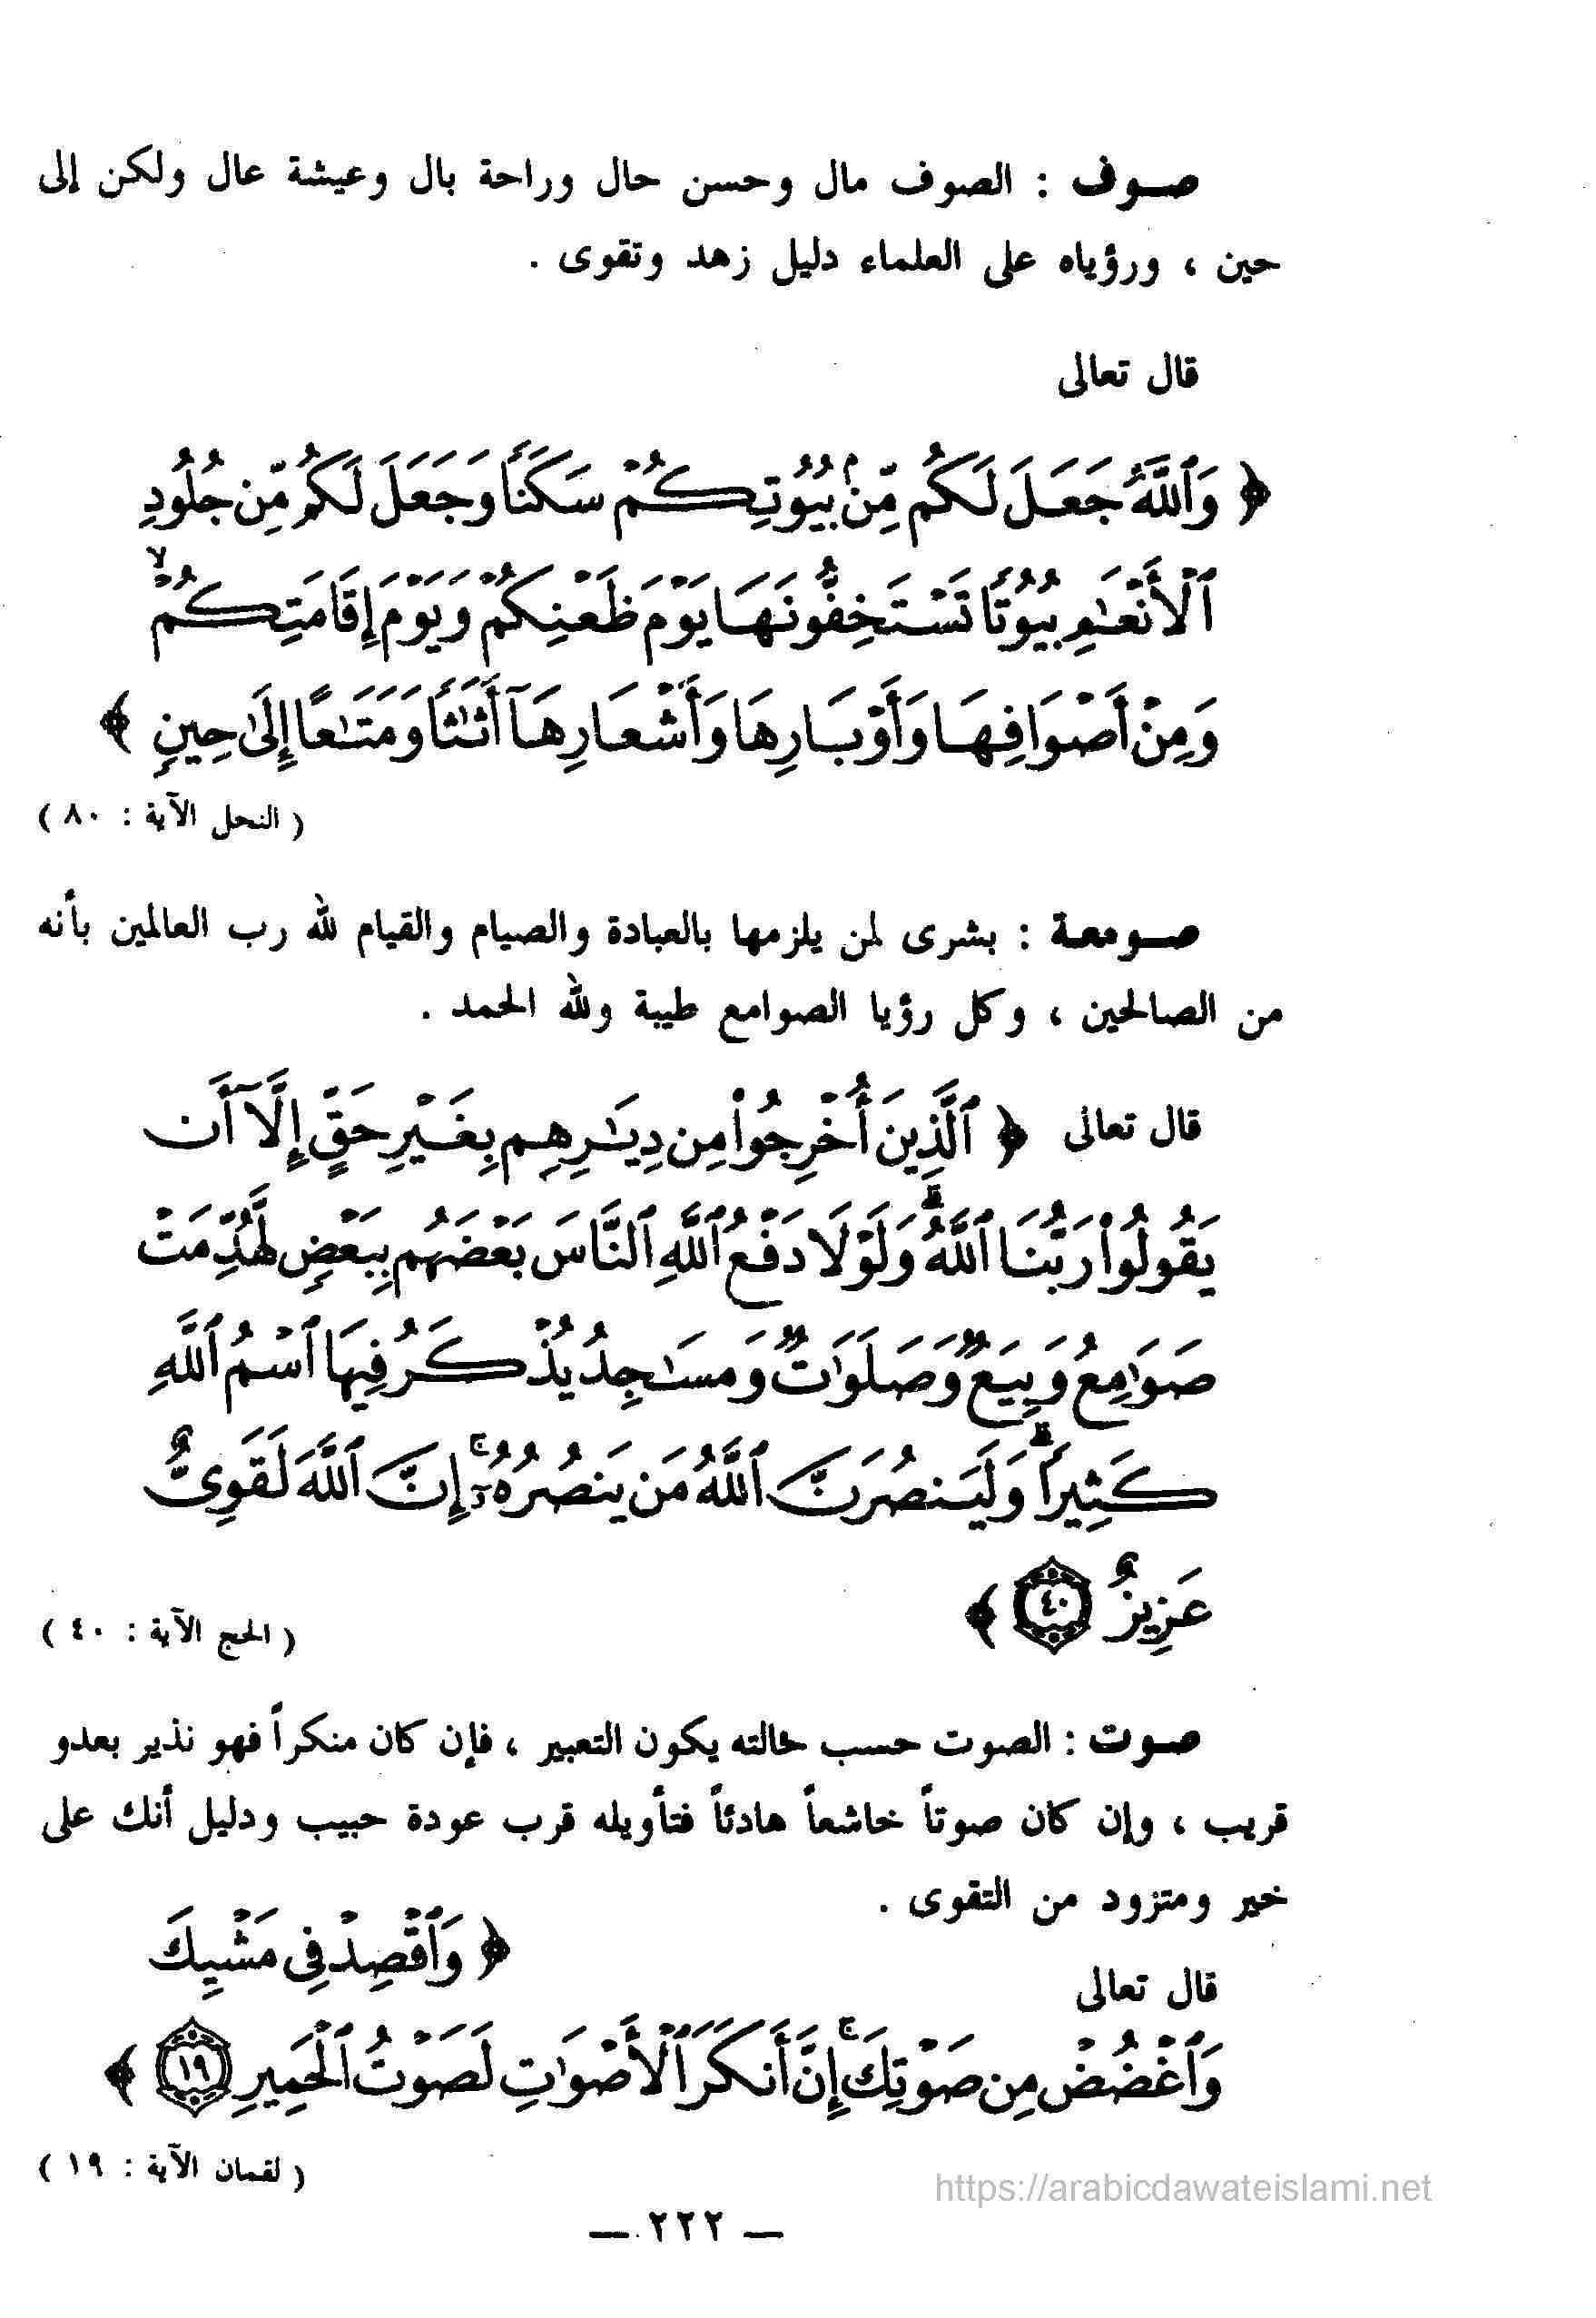 صـوف : الصوف مال وحسن حال وراحة بال وعيشة عال ولكن إلى
حين ، ورؤياه على العلماء دليل زهد وتقوى .
قال تعالى
﴿ وَٱللَّهُ جَعَلَ لَكُم مِّنۢ بُيُوتِكُمْ سَكَنًا وَجَعَلَ لَكُم مِّن جُلُودِ
ٱلْأَنْعَٰمِ بُيُوتًا تَسْتَخِفُّونَهَا يَوْمَ ظَعْنِكُمْ وَيَوْمَ إِقَامَتِكُمْ ۙ
وَمِنْ أَصْوَافِهَا وَأَوْبَارِهَا وَأَشْعَارِهَآ أَثَٰثًا وَمَتَٰعًا إِلَىٰ حِينٍ ﴾
( النحل الآية : ٨٠ )
صـومعـة : بشرى لمن يلزمها بالعبادة والصيام والقيام لله رب العالمين بأنه
من الصالحين ، وكل رؤيا الصوامع طيبة ولله الحمد .
قال تعالى ﴿ ٱلَّذِينَ أُخْرِجُوا۟ مِن دِيَٰرِهِم بِغَيْرِ حَقٍّ إِلَّآ أَن
يَقُولُوا۟ رَبُّنَا ٱللَّهُ ۗ وَلَوْلَا دَفْعُ ٱللَّهِ ٱلنَّاسَ بَعْضَهُم بِبَعْضٍ لَّهُدِّمَتْ
صَوَٰمِعُ وَبِيَعٌ وَصَلَوَٰتٌ وَمَسَٰجِدُ يُذْكَرُ فِيهَا ٱسْمُ ٱللَّهِ
كَثِيرًا ۗ وَلَيَنصُرَنَّ ٱللَّهُ مَن يَنصُرُهُۥٓ ۚ إِنَّ ٱللَّهَ لَقَوِىٌّ
عَزِيزٌ ٤٠ ﴾
( الحج الآية : ٤٠ )
صـوت : الصوت حسب حالته يكون التعبير ، فإن كان منكراً فهو نذير بعدو
قريب ، وإن كان صوتاً خاشعاً هادئاً فتأويله قرب عودة حبيب ودليل أنك على
خير ومتزود من التقوى .
قال تعالى ﴿ وَٱقْصِدْ فِى مَشْيِكَ
وَٱغْضُضْ مِن صَوْتِكَ ۚ إِنَّ أَنكَرَ ٱلْأَصْوَٰتِ لَصَوْتُ ٱلْحَمِيرِ ١٩ ﴾
( لقمان الآية : ١٩ )
https://arabicdawateislami.net
— ٢٢٢ —